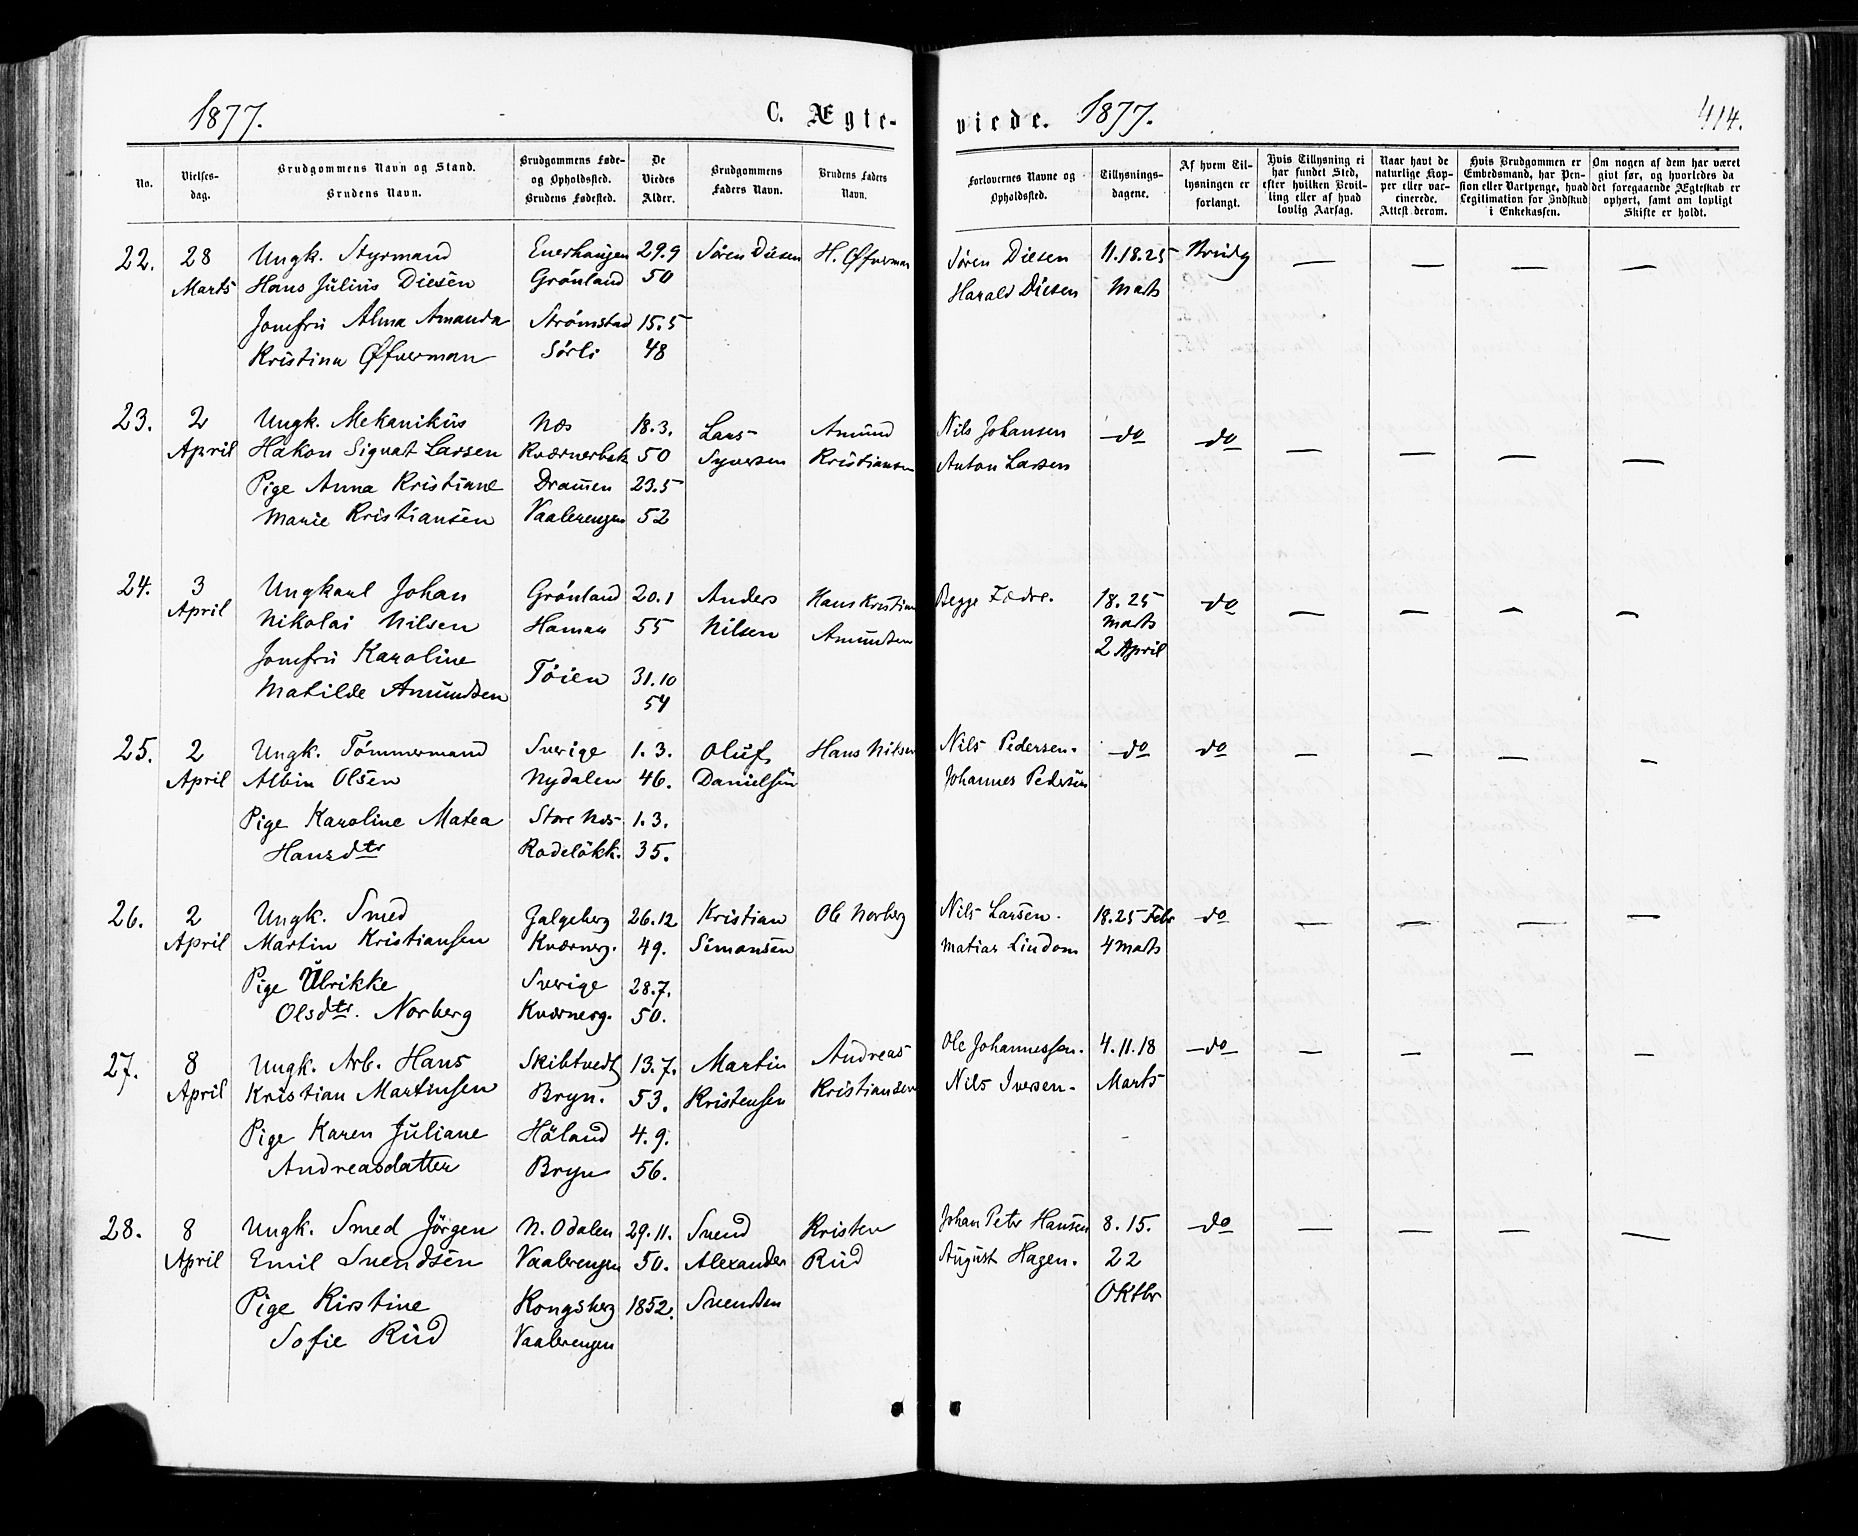 1877.
C. Ægte-
viede. 1877.
414.
No.
Vielses-
dag.
Brudgommens Navn og Stand.
Brudens Navn.
Brudgommens Føde-
og Opholdssted.
Brudens Fødested.
De
Viedes
Alder.
Brudgommens
Faders Navn.
Brudens Faders
Navn.
Forlovernes Navne og
Opholdssted.
Tillysnings-
dagene.
Af hvem Til-
lysningen er
forlangt.
Hvis Tillysning ei
har fundet Sted,
efter hvilken Bevil-
ling eller af hvad
lovlig Aarsag.
Naar havt de
naturlige Kop-
per eller vac-
cinerede.
Attest derom.
Hvis Brudgommen er
Embedsmand, har Pen-
sion eller Vartpenge, hvad
Legitimation for Indskud
i Enkekassen.
Om nogen af dem har været
givt før, og hvorledes da
det foregaaende Ægteskab er
ophørt, samt om lovligt
Skifte er holdt.
22. 28 Ungk. Styrmand Enerhaugen 29.9 Sören Diesen H. Øfverman Sören Diesen 11.18.25 Brudg — — — —
Marts Hans Julius Diesen Grönland 50 Harald Diesen Marts
Jomfru Alma Amanda Strømstad 15.5
Kristina Øfverman Sörli 48
23. 2 Ungk. Mekanikus Næs 18.3. Lars Amund Nils Johansen do do — — — —
April Håkon Sigvat Larsen Kværnerbak 50 Syversen Kristiansen Anton Larsen
Pige Anna Kristiane Dramen 23.5
Marie Kristiansen Vaalerengen 52
24. 3 Ungkarl Johan Grönland 20.1 Anders Hans Kristian Begge Fædre. 18.25 do — — — —
April Nikolai Nilsen Hamar 55 Nilsen Amundsen Marts
Jomfru Karoline Töien 31.10 2 April
Matilde Amundsen 54
25. 2 Ungk. Tömmermand Sverige 1.3. Oluf Hans Nilsen Nils Pedersen. do do — — — —
April Albin Olsen Nydalen 46. Danielsen Johannes Pedersen
Pige Karoline Matea Store Næs 1.3.
Hansdtr Rodelökk. 35.
26. 2 Ungk. Smed Galgeberg 26.12 Kristian Ole Norberg Nils Larsen. 18.25 Febr do — — — —
April Martin Kristiansen Kværnerg. 49. Simonsen Matias Lindom 4 Marts
Pige Ulrikke Sverige 28.7.
Olsdtr. Norberg Kværnerg. 50.
27. 8 Ungk. Arb. Hans Skibtvedt 13.7. Martin Andreas Ole Johannessen. 4.11.18 do — — — —
April Kristian Martinsen Bryn. 53. Kristensen Kristiansen Nils Iversen. Marts
Pige Karen Juliane Höland 4.9.
Andreasdatter Bryn 56.
28. 8 Ungk. Smed Jörgen N. Odalen 29.11. Svend Kristen Johan Petr Hansen 8.15. do — — — —
April Emil Svendsen Vaalerengen 50. Alexander Rud August Hagen. 22
Pige Kirstine Kongsberg 1852. Svendsen Oktbr
Sofie Rud Vaalerengen